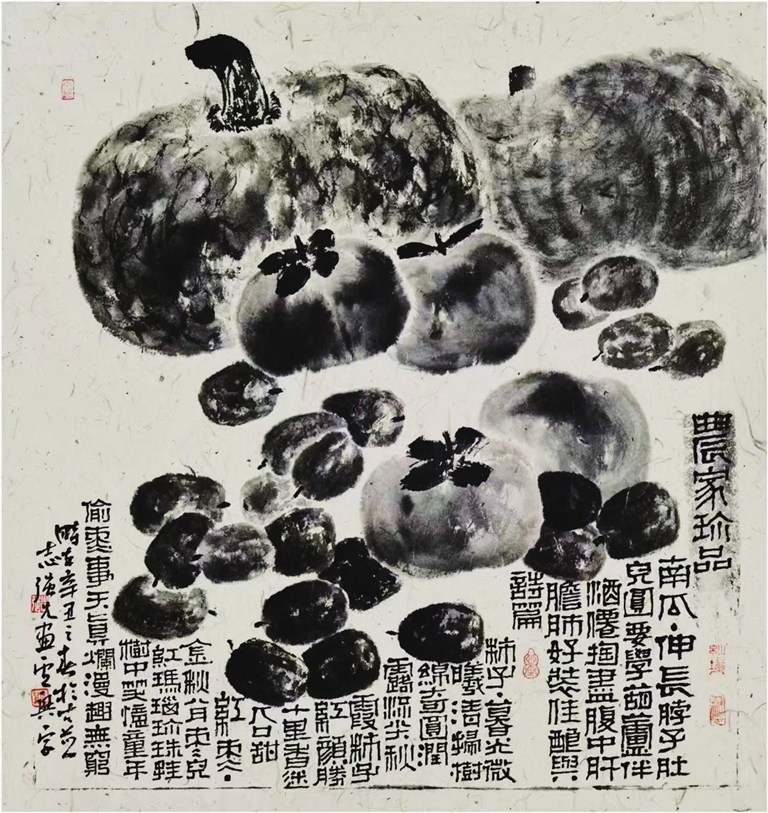 農家珍品
南瓜·伸長脖子肚
兒圓要學葫蘆伴
酒僊掏盡腹中肝
膽肺好裝佳釀與
詩篇
柿子·暮光微
曦揚樹
綿圓潤
露添秋
霞柿子
紅顔勝
十里香迷
人口甜
紅棗·
金秋八月棗兒
紅瑪瑙珍珠挂
樹中笑憶童年
偷棗事天真爛漫趣無窮
時在辛丑之春於
志強先画雲興字